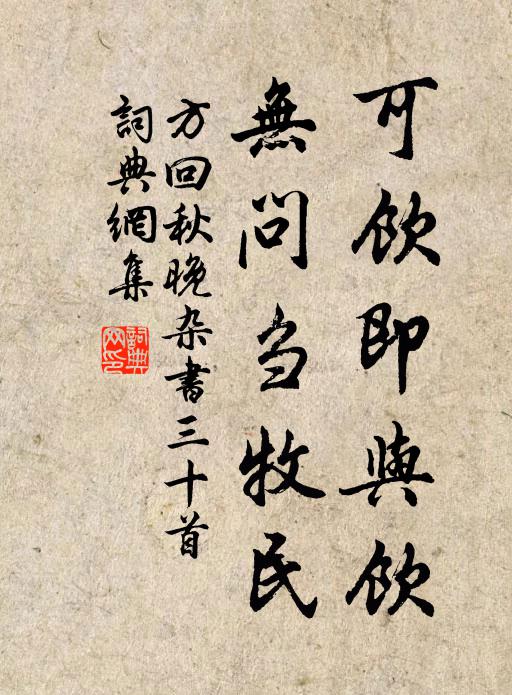 可飲即與飲
無問当牧民
方回秋晚杂書三十首
詞典網集
詞典网印